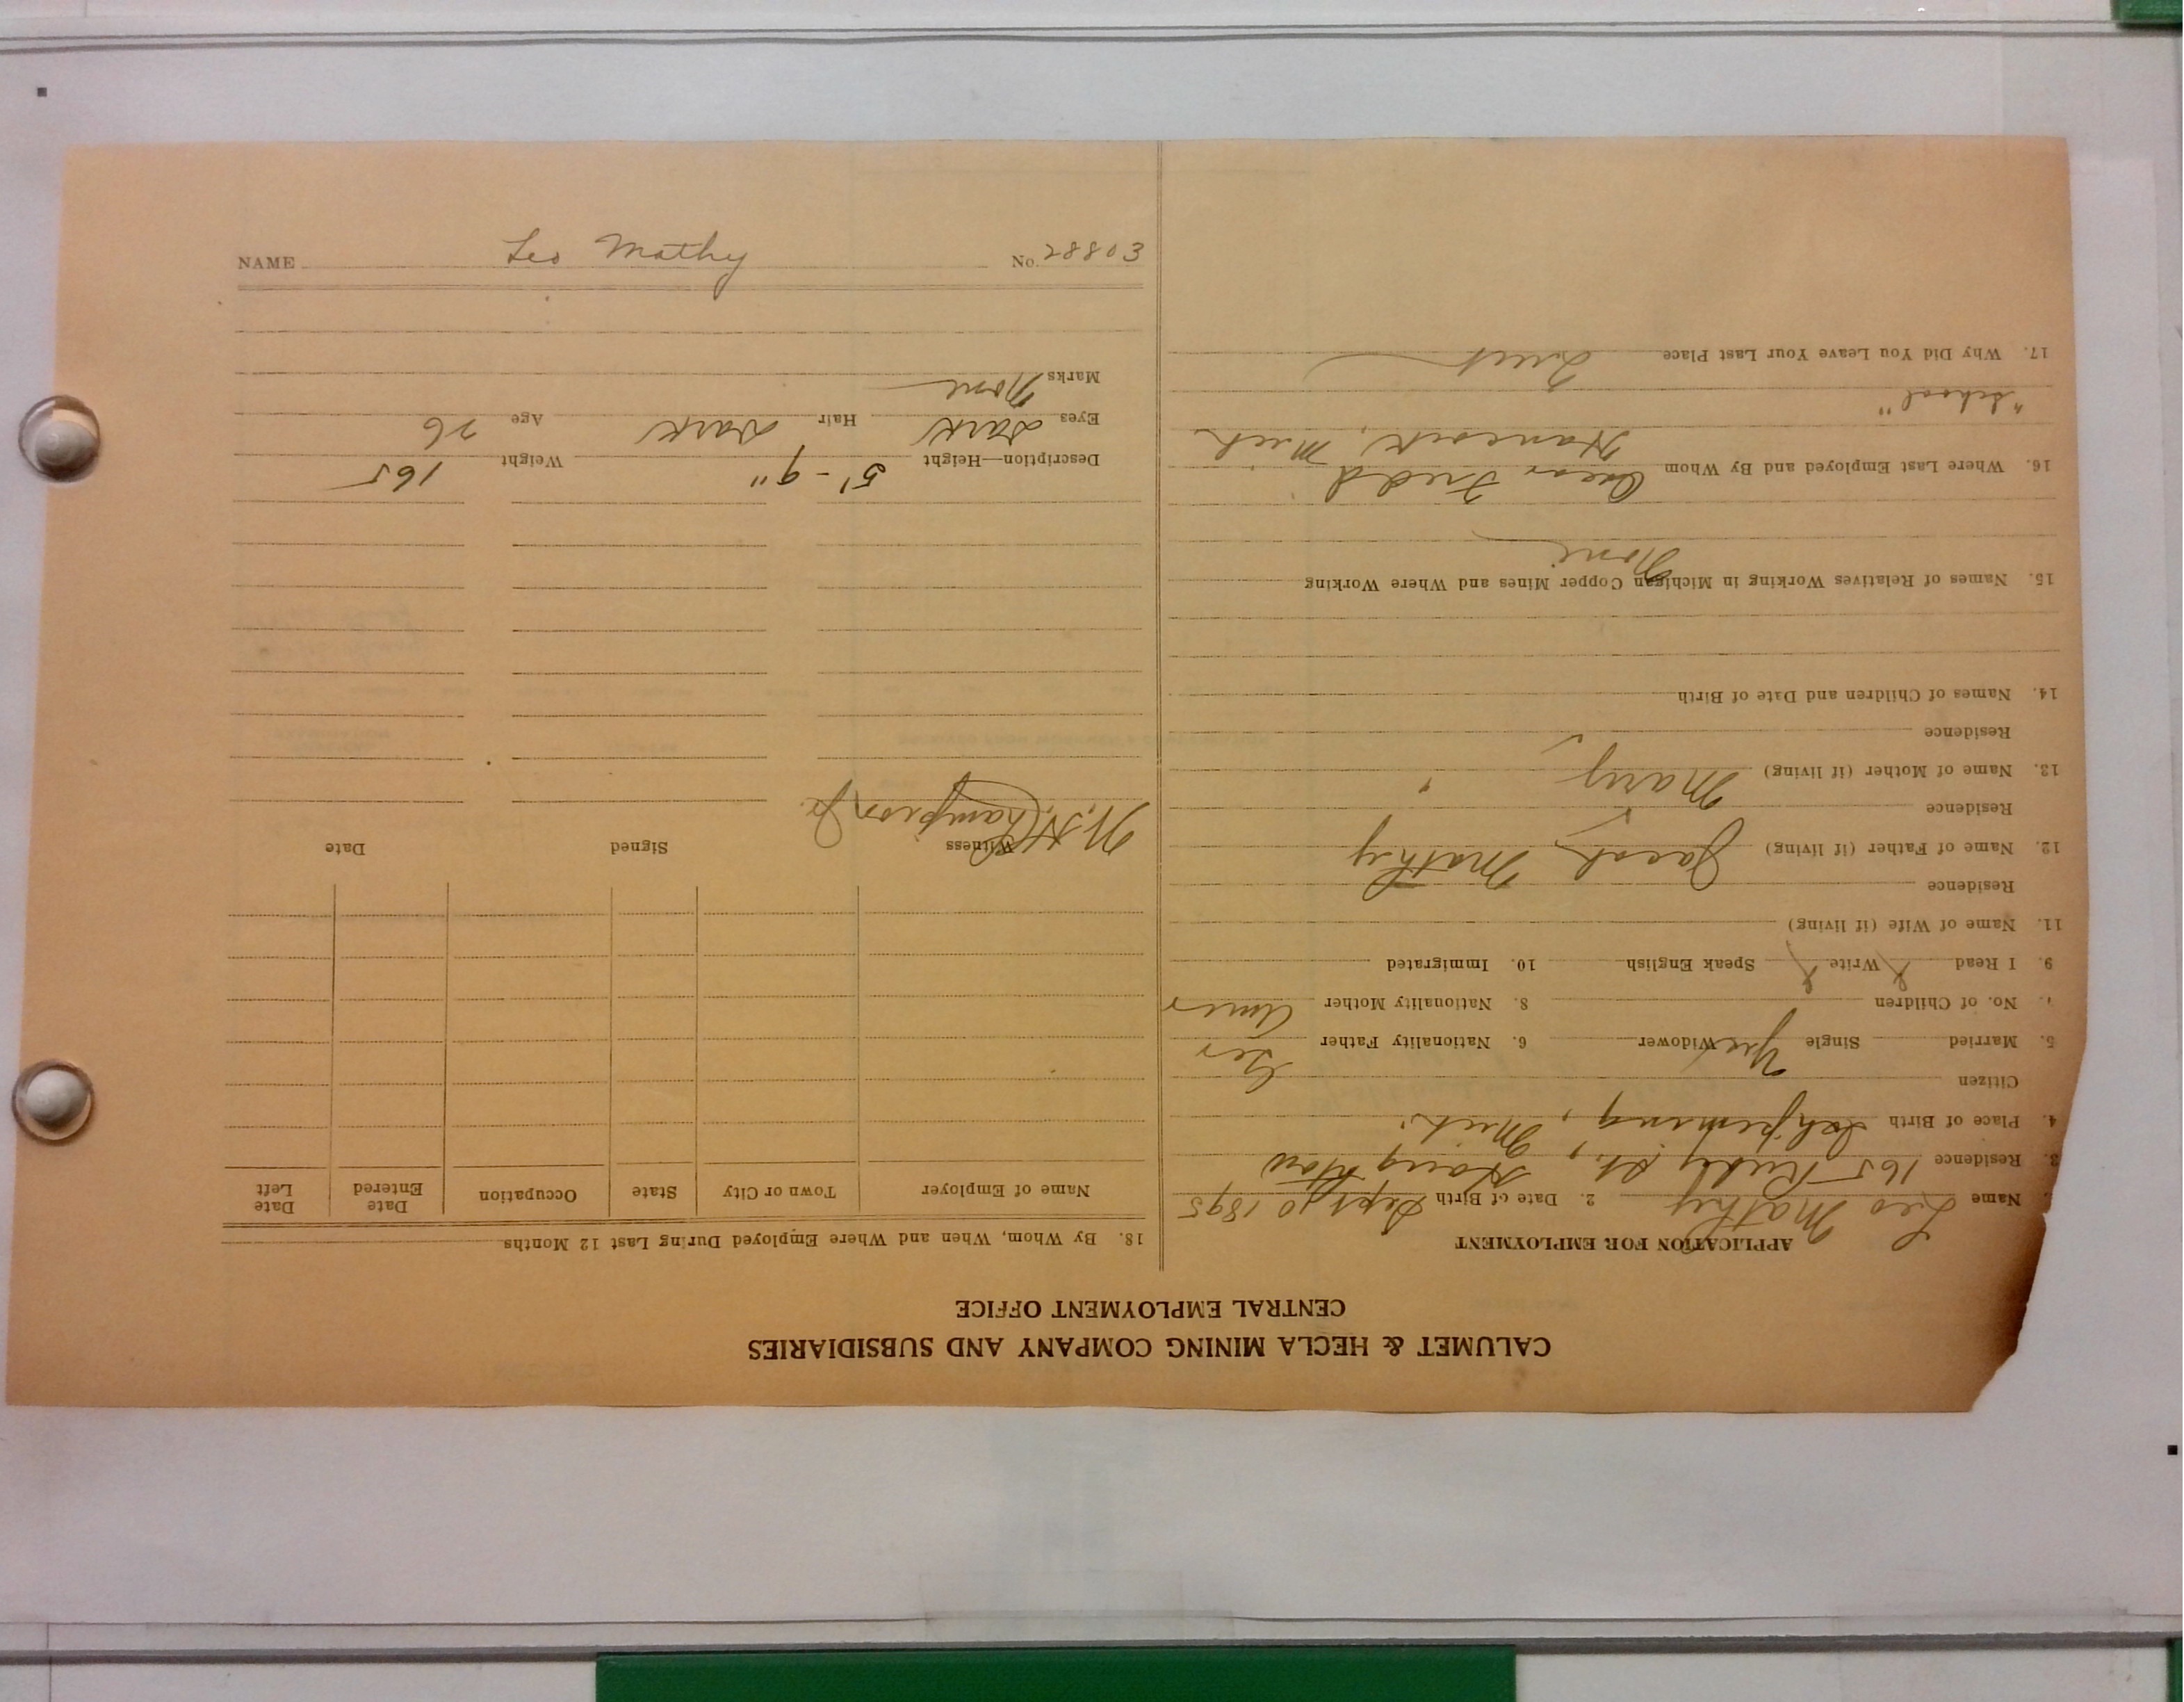 CALUMET & HECLA MINING COMPANY AND SUBSIDIARIES
CENTRAL EMPLOYMENT OFFICE
APPLICATION FOR EMPLOYMENT
Name Leo Mathy 2. Date of Birth Sept 10 1895
3. Residence 165 Ruby St., Houghton
Mich.
4. Place of Birth Ishpeming,
Citizen
5. Married Single Yes Widower 6. Nationality Father Ger
7. No. of Children 8. Nationality Mother Amer
9. I Read Write Speak English 10. Immigrated
11. Name of Wife (if living)
Residence
12. Name of Father (if living) Jacob Mathy
Residence
13. Name of Mother (if living) Mary "
Residence
14. Names of Children and Date of Birth
15. Names of Relatives Working in Michigan Copper Mines and Where Working
None
16. Where Last Employed and By Whom
Hancock, Mich
"School"
17. Why Did You Leave Your Last Place Quit
18. By Whom, When and Where Employed During Last 12 Months
Name of Employer Town or City State Occupation Date Entered Date Left
Witness Signed Date
W. H. Champion Jr.
Description—Height 5'-9" Weight 165
Eyes Dark Hair Dark Age 26
Marks None
NAME Leo Mathy No. 28803